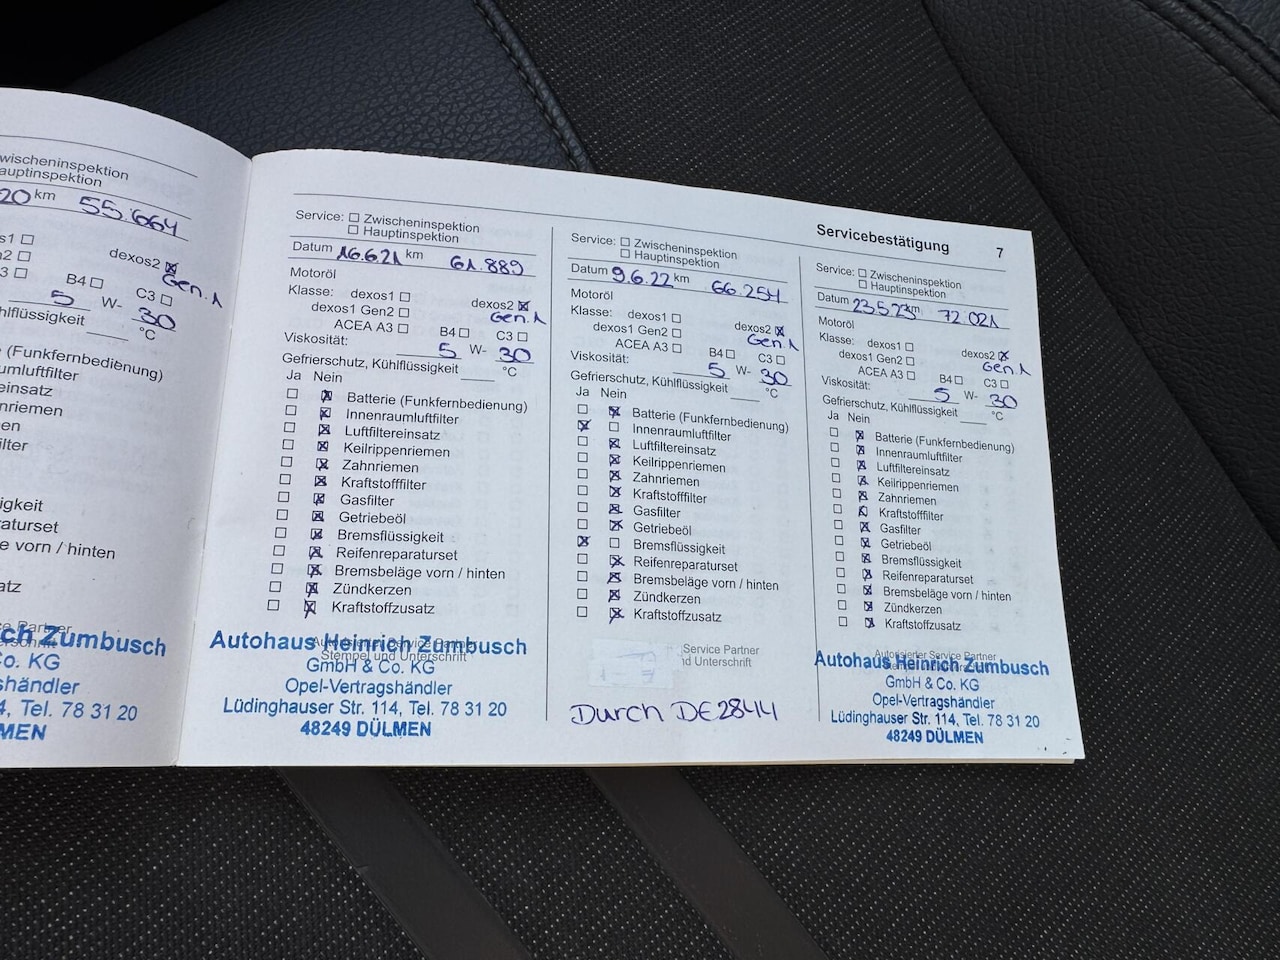 wischeninspektion
auptinspektion
20 km 55.664
s1 ☐ dexos2 ☒
n2 ☐ Gen.1
3 ☐ B4 ☐ C3 ☐
5 W- 30
hlflüssigkeit °C
(Funkfernbedienung)
umluftfilter
einsatz
nriemen
en
lter
igkeit
raturset
e vorn / hinten
atz
ch Zumbusch
Co. KG
shändler
4, Tel. 78 31 20
MEN
Service: ☐ Zwischeninspektion
☐ Hauptinspektion
Datum 16.6.21 km 61.889
Motoröl
Klasse: dexos1 ☐ dexos2 ☒
dexos1 Gen2 ☐ Gen.1
ACEA A3 ☐ B4 ☐ C3 ☐
Viskosität: 5 W- 30
Gefrierschutz, Kühlflüssigkeit °C
Ja Nein
☐ ☒ Batterie (Funkfernbedienung)
☐ ☒ Innenraumluftfilter
☐ ☒ Luftfiltereinsatz
☐ ☒ Keilrippenriemen
☐ ☒ Zahnriemen
☐ ☒ Kraftstofffilter
☐ ☒ Gasfilter
☐ ☒ Getriebeöl
☐ ☒ Bremsflüssigkeit
☐ ☒ Reifenreparaturset
☐ ☒ Bremsbeläge vorn / hinten
☐ ☒ Zündkerzen
☐ ☒ Kraftstoffzusatz
Autorisierter Service Partner
Stempel und Unterschrift
Autohaus Heinrich Zumbusch
GmbH & Co. KG
Opel-Vertragshändler
Lüdinghauser Str. 114, Tel. 78 31 20
48249 DÜLMEN
Service: ☐ Zwischeninspektion
☐ Hauptinspektion
Datum 9.6.22 km 66.254
Motoröl
Klasse: dexos1 ☐ dexos2 ☒
dexos1 Gen2 ☐ Gen.1
ACEA A3 ☐ B4 ☐ C3 ☐
Viskosität: 5 W- 30
Gefrierschutz, Kühlflüssigkeit °C
Ja Nein
☐ ☒ Batterie (Funkfernbedienung)
☒ ☐ Innenraumluftfilter
☐ ☒ Luftfiltereinsatz
☐ ☒ Keilrippenriemen
☐ ☒ Zahnriemen
☐ ☒ Kraftstofffilter
☐ ☒ Gasfilter
☐ ☒ Getriebeöl
☒ ☐ Bremsflüssigkeit
☐ ☒ Reifenreparaturset
☐ ☒ Bremsbeläge vorn / hinten
☐ ☒ Zündkerzen
☐ ☒ Kraftstoffzusatz
Service Partner
nd Unterschrift
Durch DE2844
Servicebestätigung 7
Service: ☐ Zwischeninspektion
☐ Hauptinspektion
Datum 23.5.23 km 72.021
Motoröl
Klasse: dexos1 ☐ dexos2 ☒
dexos1 Gen2 ☐ Gen.1
ACEA A3 ☐ B4 ☐ C3 ☐
Viskosität: 5 W- 30
Gefrierschutz, Kühlflüssigkeit °C
Ja Nein
☐ ☒ Batterie (Funkfernbedienung)
☐ ☒ Innenraumluftfilter
☐ ☒ Luftfiltereinsatz
☐ ☒ Keilrippenriemen
☐ ☒ Zahnriemen
☐ ☒ Kraftstofffilter
☐ ☒ Gasfilter
☐ ☒ Getriebeöl
☐ ☒ Bremsflüssigkeit
☐ ☒ Reifenreparaturset
☐ ☒ Bremsbeläge vorn / hinten
☐ ☒ Zündkerzen
☐ ☒ Kraftstoffzusatz
Autorisierter Service Partner
Autohaus Heinrich Zumbusch
GmbH & Co. KG
Opel-Vertragshändler
Lüdinghauser Str. 114, Tel. 78 31 20
48249 DÜLMEN